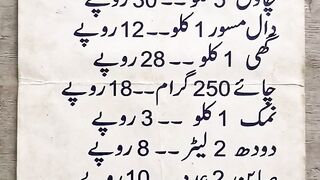 چاول 5 کلو--30 روپے
دال مسور 1 کلو--12 روپے
گھی 1 کلو -- 28 روپے
چائے 250 گرام--18 روپے
نمک 1 کلو -- 3 روپے
دودھ 2 لیٹر -- 8 روپے
صابن 2 عدد -- 10 روپے